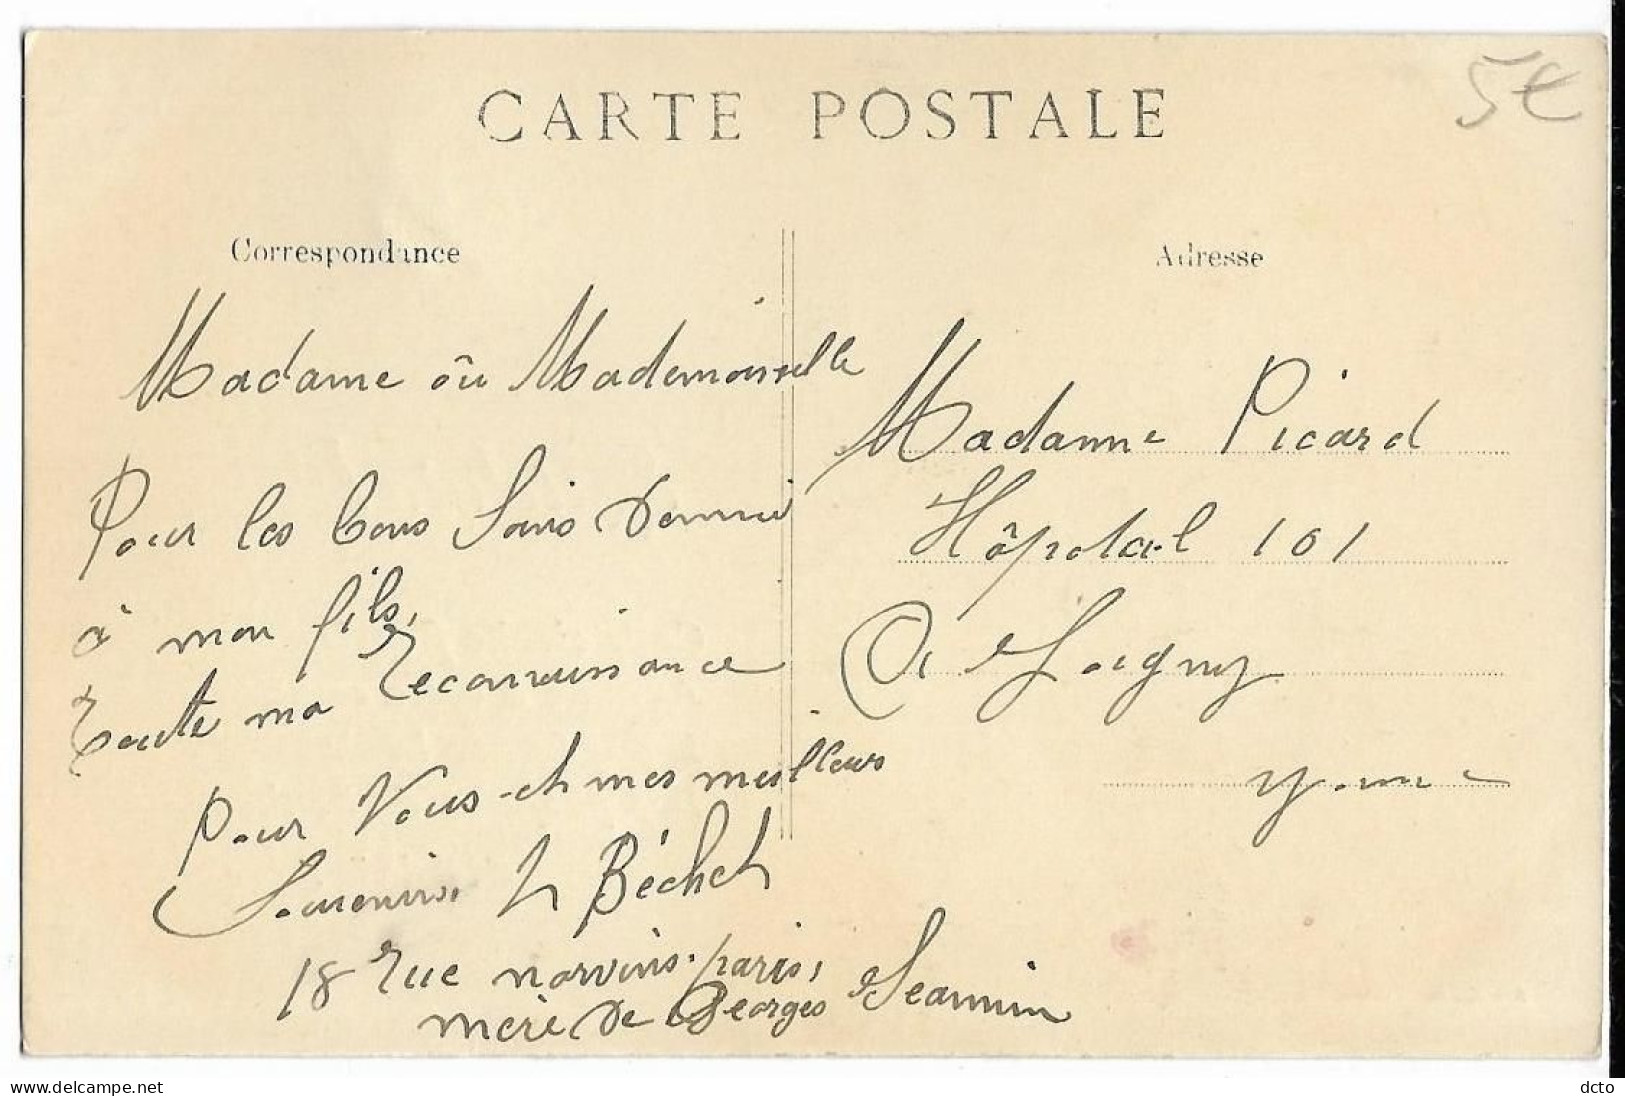 CARTE POSTALE
5€
Correspondance
Madame ôu Mademoiselle
Pour les bons Soins Donnés
à mon fils,
toute ma Reconnaissance
pour Vous et mes meilleurs
Souvenirs. Béchet
18 Rue norvins. paris,
mère De Georges Jeannin
Adresse
Madame Picard
Hôpital 101
à Joigny
yonne
delcampe.net
dcto